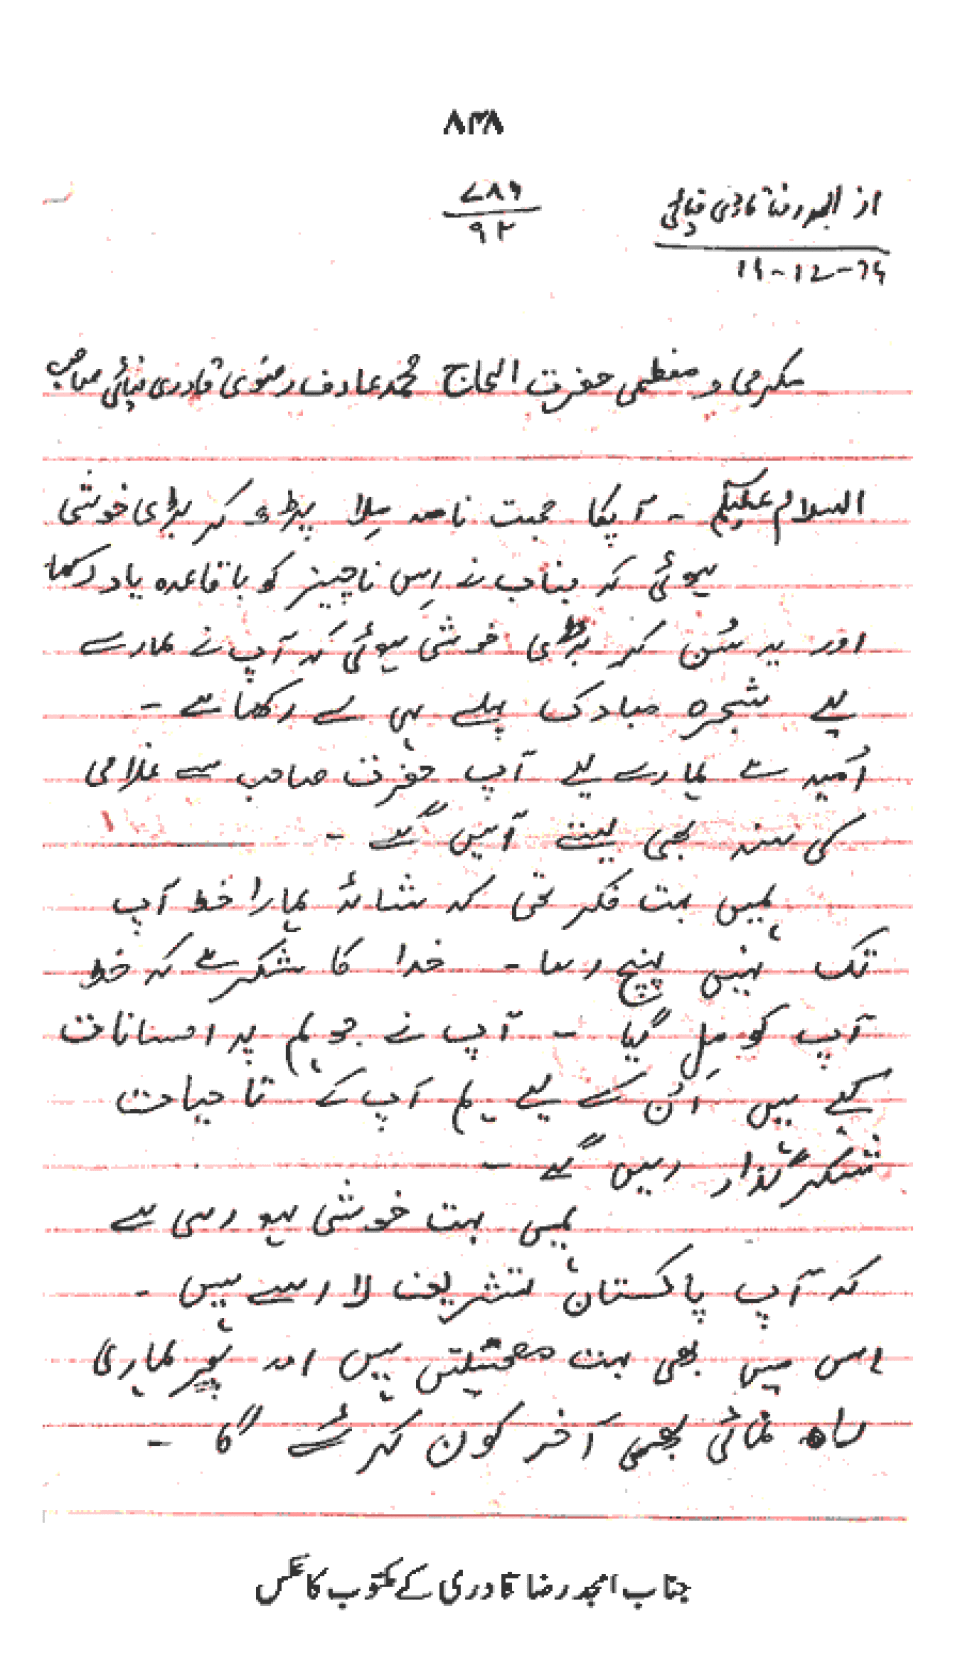 ۸۳۸
۷۸۶
۹۲
از امجد رضا قادری ضیائی
19-12-79
مکرمی و معظمی حضرت الحاج محمد عارف رضوی قادری ضیائی صاحب
السلام علیکم - آپکا محبت نامہ مِلا پڑھ کر بڑی خوشی
ہوئی کہ جناب نے اِس ناچیز کو باقاعدہ یاد رکھا
اور یہ سُن کر بڑی خوشی ہوئی کہ آپ نے ہمارے
لیے شجرہ مبارک پہلے ہی لے رکھا ہے -
اُمید ہے ہمارے لیے آپ حضرت صاحب سے غلامی
کی سند بھی لیتے آئیں گے -
ہمیں بہت فکر تھی کہ شائد ہمارا خط آپ
تک نہیں پہنچ رہا - خدا کا شکر ہے کہ خط
آپ کو مِل گیا - آپ نے جو ہم پر احسانات
کیے ہیں اُن کے لیے ہم آپ کے تاحیات
شکر گذار رہیں گے -
ہمیں بہت خوشی ہو رہی ہے
کہ آپ پاکستان تشریف لا رہے ہیں -
اس میں بھی بہت مصلحتیں ہیں اور پھر ہماری
راہ نمائی بھی آخر کون کرئے گا -
جناب امجد رضا قادری کے مکتوب کا عکس